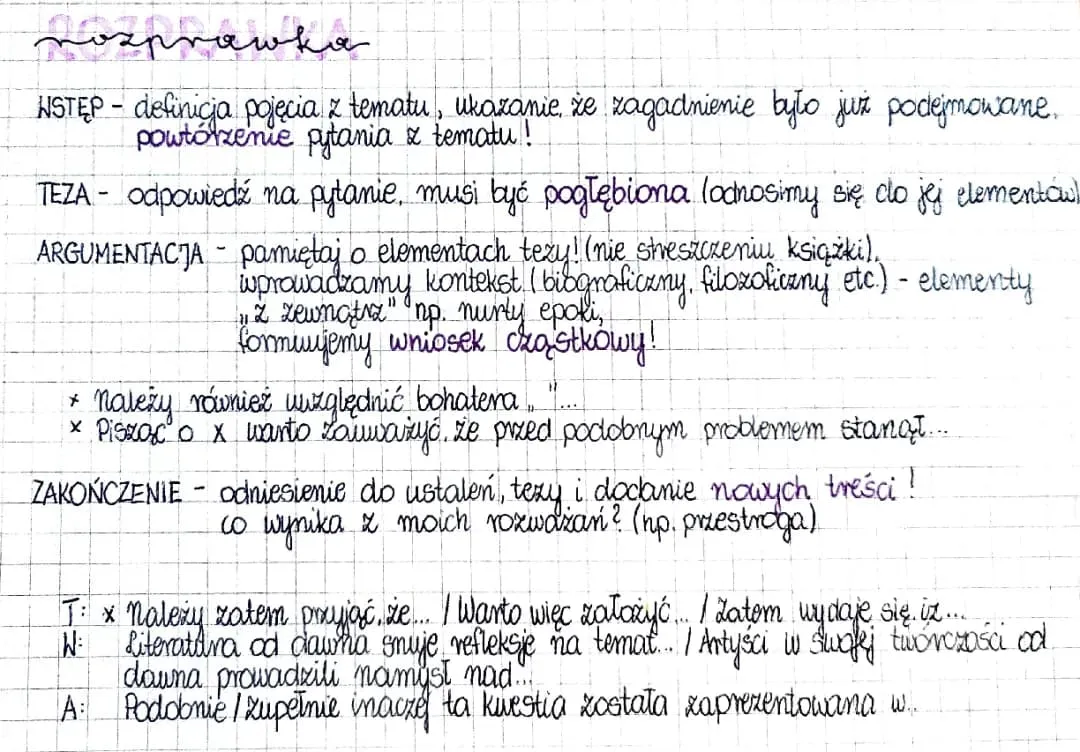 ROZPRAWKA
rozprawka
WSTĘP - definicja pojęcia z tematu, ukazanie, że zagadnienie było już podejmowane,
powtórzenie pytania z tematu!
TEZA - odpowiedź na pytanie, musi być pogłębiona (odnosimy się do jej elementów)
ARGUMENTACJA - pamiętaj o elementach tezy! (nie streszczeniu książki),
wprowadzamy kontekst (biograficzny, filozoficzny etc.) - elementy
„z zewnątrz" np. nurty epoki,
formuujemy wniosek cząstkowy!
* Należy również uwzględnić bohatera „ "...
* Pisząc o x warto zauważyć, że przed podobnym problemem stanął...
ZAKOŃCZENIE - odniesienie do ustaleń, tezy i dodanie nowych treści!
co wynika z moich rozważań? (np. przestroga)
T: * Należy zatem przyjąć, że... / Warto więc założyć... / Zatem wydaje się, iż...
W: Literatura od dawna snuje refleksje na temat... / Artyści w swojej twórczości od
dawna prowadzili namysł nad...
A: Podobnie / zupełnie inaczej ta kwestia została zaprezentowana w...